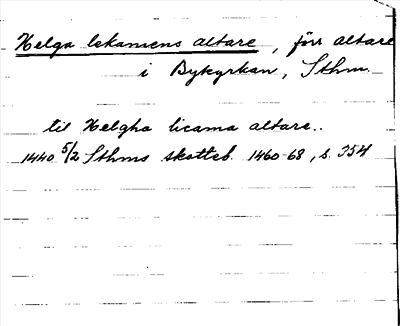 Helga lekamens altare, förr altare
i Bykyrkan, Sthm.
til Helgha licama altare..
1440 5/2 Sthms skotteb. 1460-68, s. 354